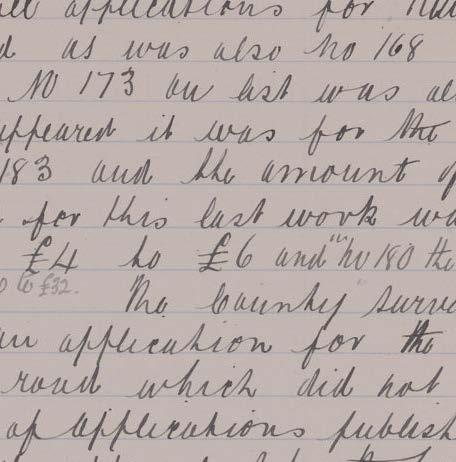 all applications for
d as was also No 168
No 173 on list was al
appeared it was for the
183 and the amount of
for this last work wa
£4 to £6 and "No 180 the
to £32. The County Surve
an application for the
road which did not
of applications publish